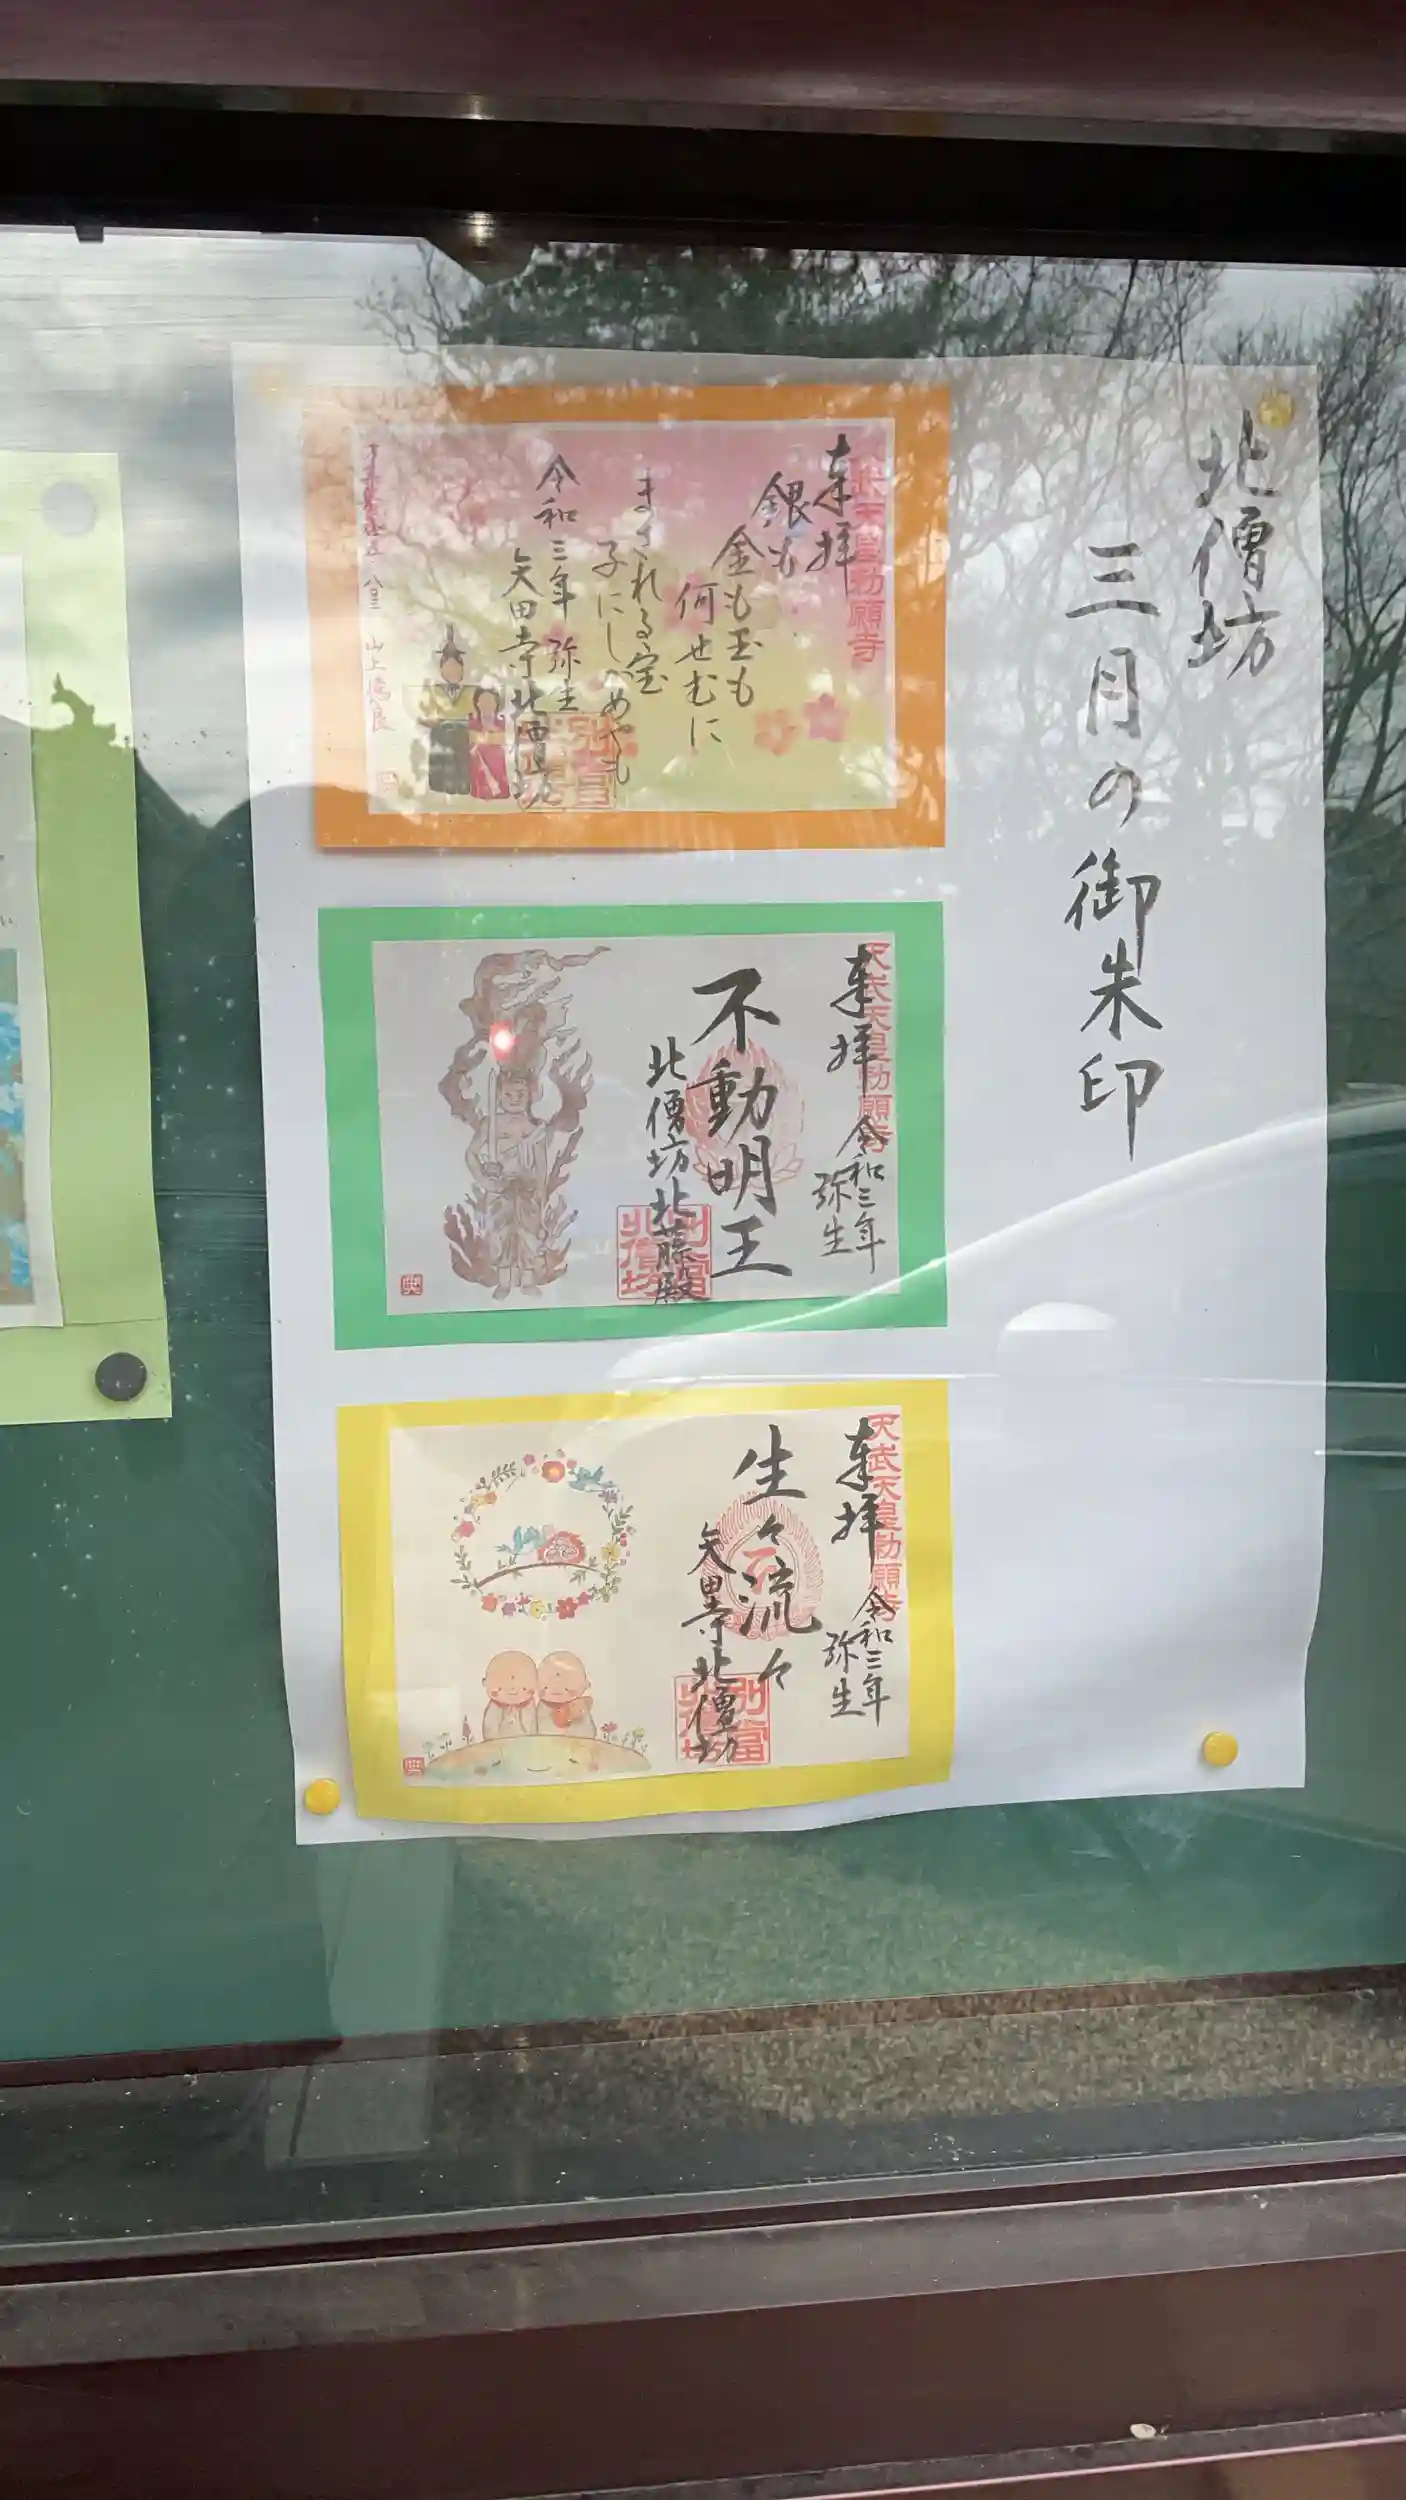 北僧坊
三月の御朱印
天武天皇勅願寺
奉拝
銀も
金も玉も
何せむに
まされる宝
子にしかめやも
令和三年 弥生
矢田寺北僧坊
万葉集巻五 八〇三 山上憶良
天武天皇勅願寺
奉拝
令和三年
弥生
不動明王
北僧坊北蔭殿
別当
北僧坊
典
天武天皇勅願寺
奉拝
令和三年
弥生
生々流々
矢田寺北僧坊
別当
北僧坊
典